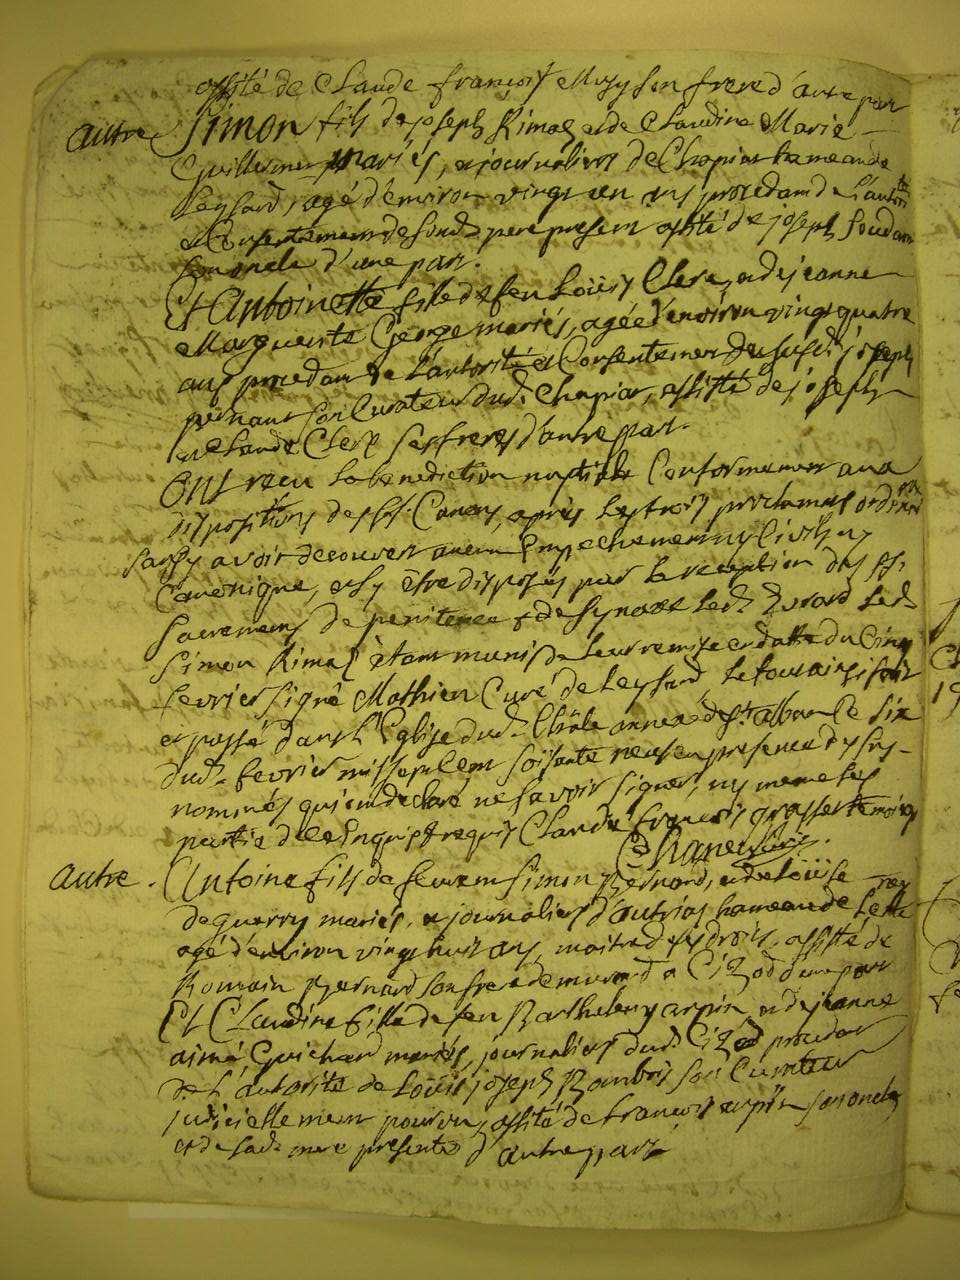 assité de Claude françois Muzy son frere d'autre part
autre Simon fils de joseph Rimas et de Claudine Marie
Guillermin mariés, et journaliers de Chapiat hameau de
Leyssard, agé d'environ vingt un ans procedant de L'autorité
et Consentement de sond. pere present assité de joseph
son oncle d'une part.
Et Antoinette fille de feu Loüis Clerc, et de jeanne
Marguerite George mariés, agée d'environ vingt quatre
ans procedant de L'autorité et Consentement du susd. joseph
pernaut son Curateur dud. Chapiat, assistée de joseph
et Claude Clerc ses freres d'autre part.
Ont recu La benediction nuptiale Conformement aux
dispositions des sts. Canons, après Les trois proclamats ordinaires
sans y avoir decouvert aucun Empechement ny Civil ny
Canonique, et s'y être disposés par La reception des ss.
sacremens de penitence et de synaxe Led. Led.
Simon Rimas étant munis de Leur remise en datte du Cinq
fevrier signé Mathieu Curé de Leyssard Le tout ainsi fait
et passé dans L'Eglise dud. annexe de st. alban Ce six
dud. fevrier mil sept Cent soixante neuf en presence des sus-
nommés qui ont declaré ne savoir signer, ny meme Les
parties de ce Enquis et requis Claude françois grosset temoins
autre. Antoine fils de feu Simon Bernard, et de Loüise
Deguerry mariés, et journaliers d'autrias hameau de
agé d'environ vingt huit ans, maitre de ses droits, assité de
Romain Bernard son frere demeurant a Cizod d'une part
Et Claudine fille de feu Barthelemy arpin et de jeanne
aimé Guichard mariés, journaliers dud. Cizod procedant
de L'autorité de Loüis joseph son Curateur
judiciellement pourvu, assité de françois arpin son oncle
et de sad. mere presente d'autre part